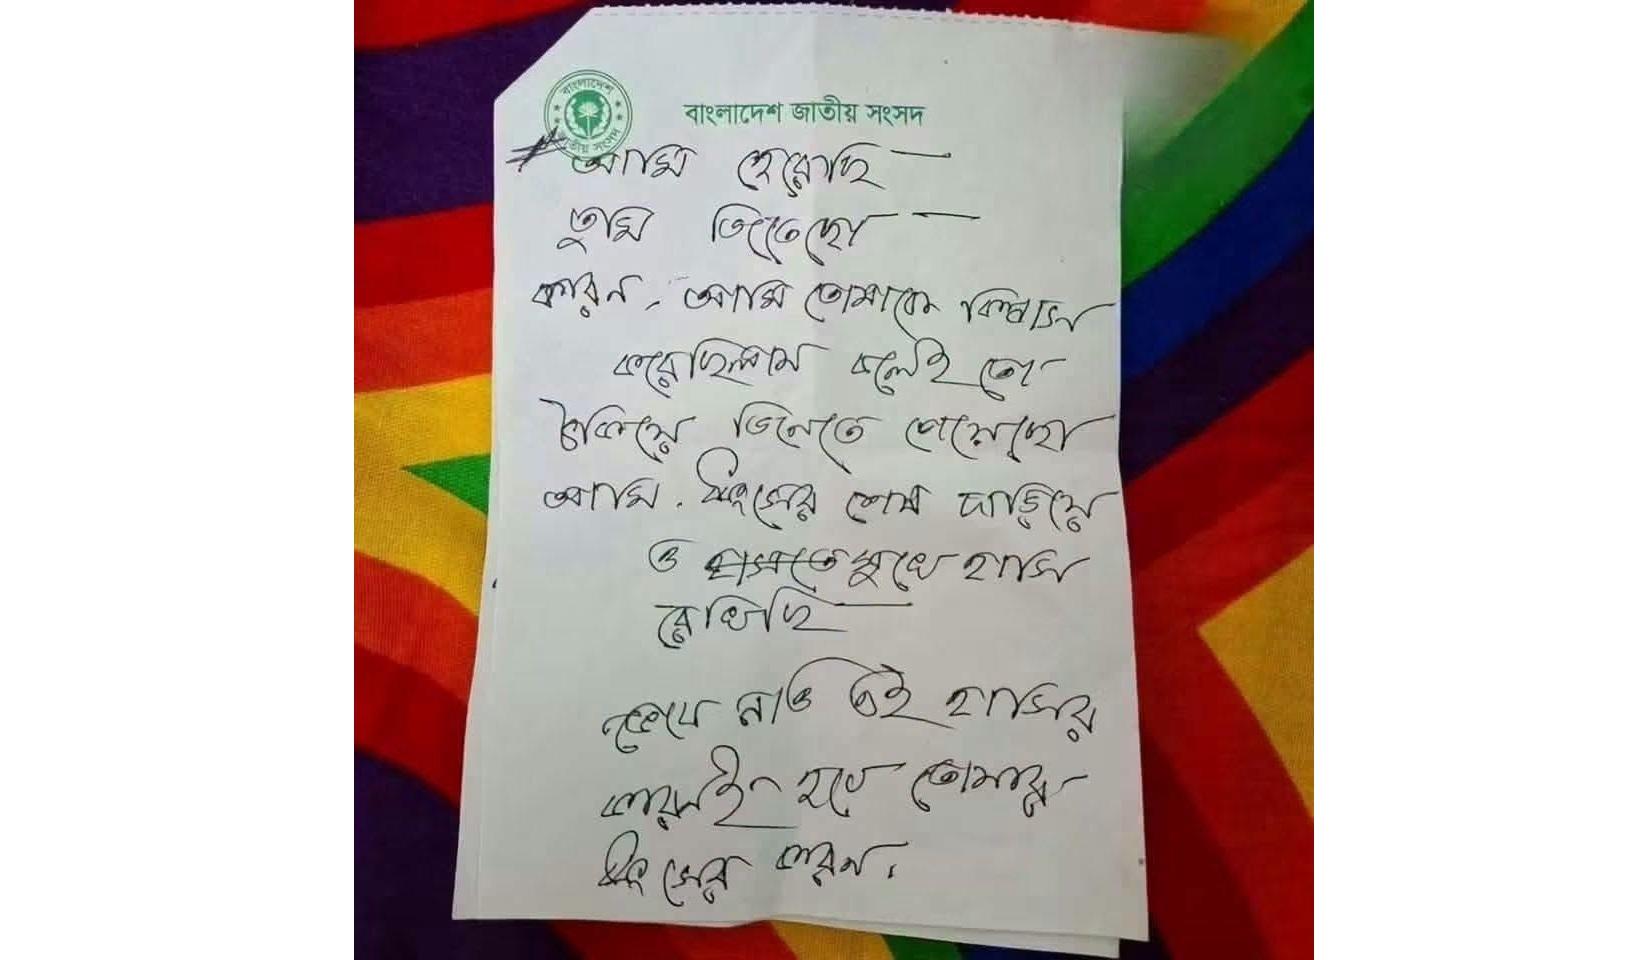 বাংলাদেশ
জাতীয় সংসদ
বাংলাদেশ জাতীয় সংসদ
আমি হেরেছি —
তুমি জিতেছো —
কারন, আমি তোমাকে বিশ্বাস
করেছিলাম বলেই তো
ঠকিয়ে জিততে পেরেছো
আমি. ধ্বংসের শেষ দাড়িয়ে
ও হাসতে মুখে হাসি
রেখেছি —
জেনে নাও এই হাসির
কারনই হবে তোমার
ধ্বংসের কারন।